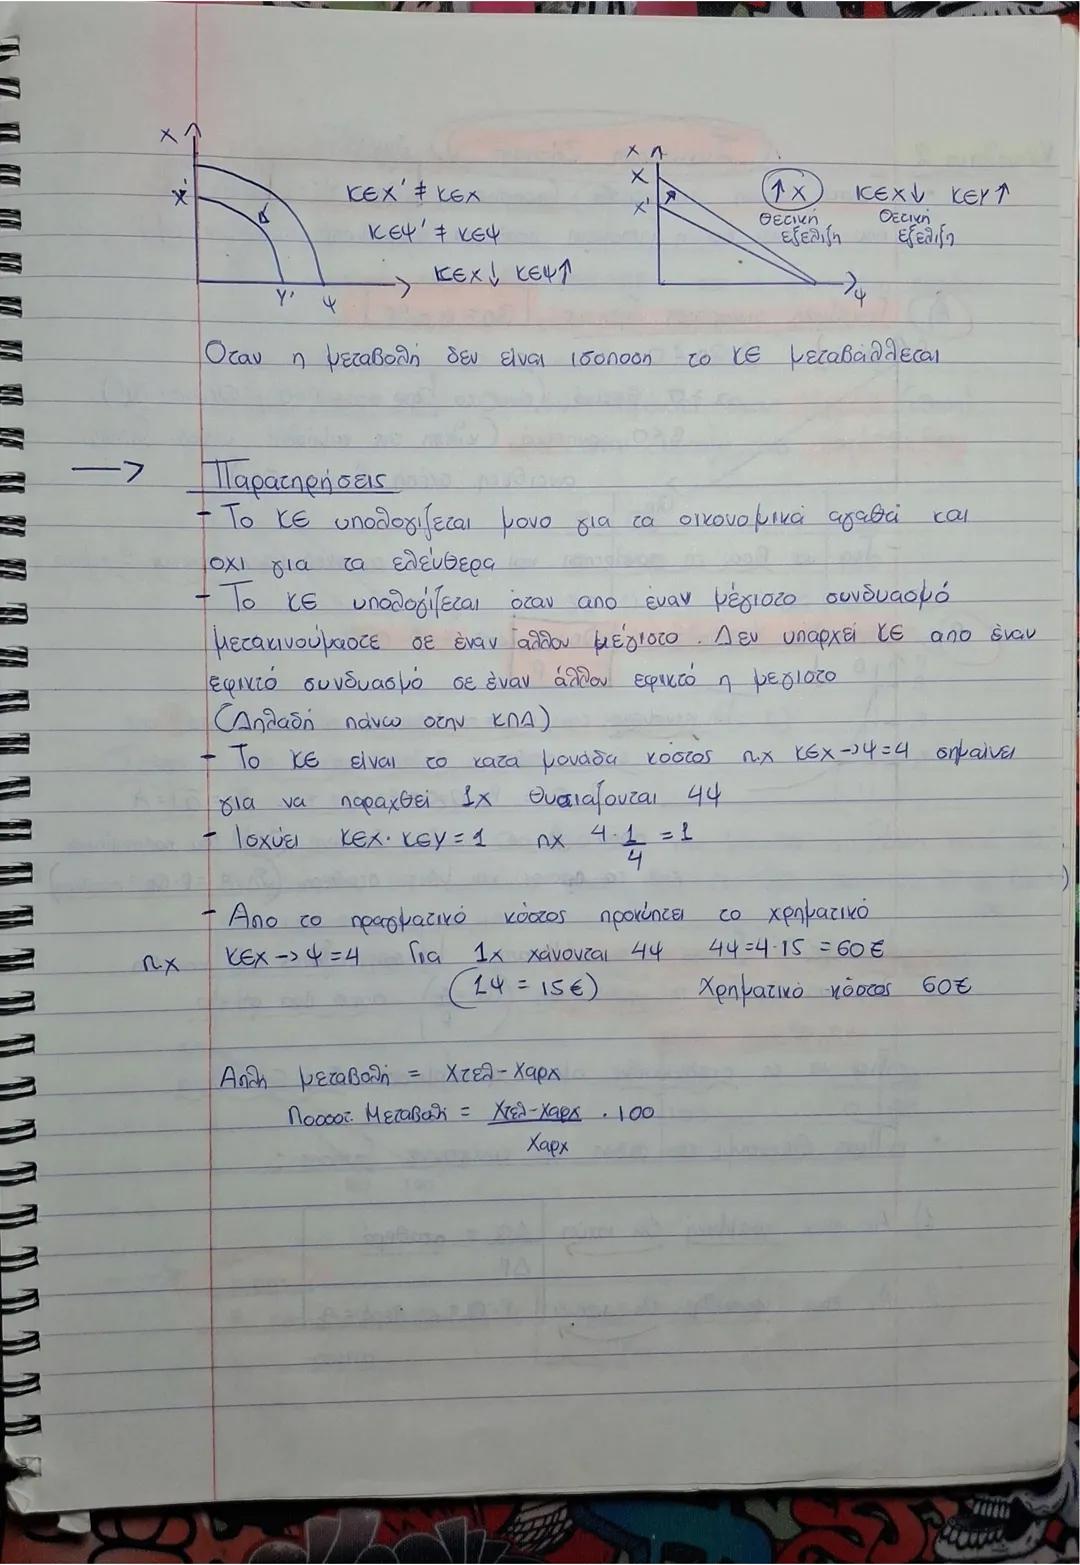 Χ
Χ'
ΚΕΧ' ≠ ΚΕΧ
ΚΕΨ' ≠ ΚΕΨ
ΚΕΧ↓ ΚΕΨ↑
Υ' Ψ
Χ
Χ
Χ'
↑Χ ΚΕΧ↓ ΚΕΥ↑
Θετική εξέλιξη Θετική εξέλιξη
Ψ
Οταν η μεταβολή δεν είναι ισόποση το ΚΕ μεταβάλλεται
→ Παρατηρήσεις
- Το ΚΕ υπολογίζεται μονο για τα οικονομικά αγαθά και
οχι για τα ελεύθερα
- Το ΚΕ υπολογίζεται όταν απο έναν μέγιστο συνδυασμό
μετακινούμαστε σε έναν άλλον μέγιστο. Δεν υπαρχεί ΚΕ απο έναν
εφικτό συνδυασμό σε έναν άλλον εφικτό η μεγιστο
(Δηλαδή πάνω στην ΚΠΔ)
- Το ΚΕ είναι το κατα μονάδα κόστος π.χ ΚΕΧ→Ψ=4 σημαίνει
για να παραχθεί 1Χ θυσιαζονται 4Ψ
- Ισχύει ΚΕΧ · ΚΕΥ = 1 πχ 4 · 1/4 = 1
- Απο το πραγματικό κόστος προκύπτει το χρηματικό
π.χ ΚΕΧ→Ψ=4 Για 1Χ χάνονται 4Ψ 4Ψ=4·15 = 60€
(1Ψ = 15€) Χρηματικό κόστος 60€
Απλη μεταβολή = Χτελ-Χαρχ
Ποσοστ. Μεταβολή = Χτελ-Χαρχ . 100
Χαρχ